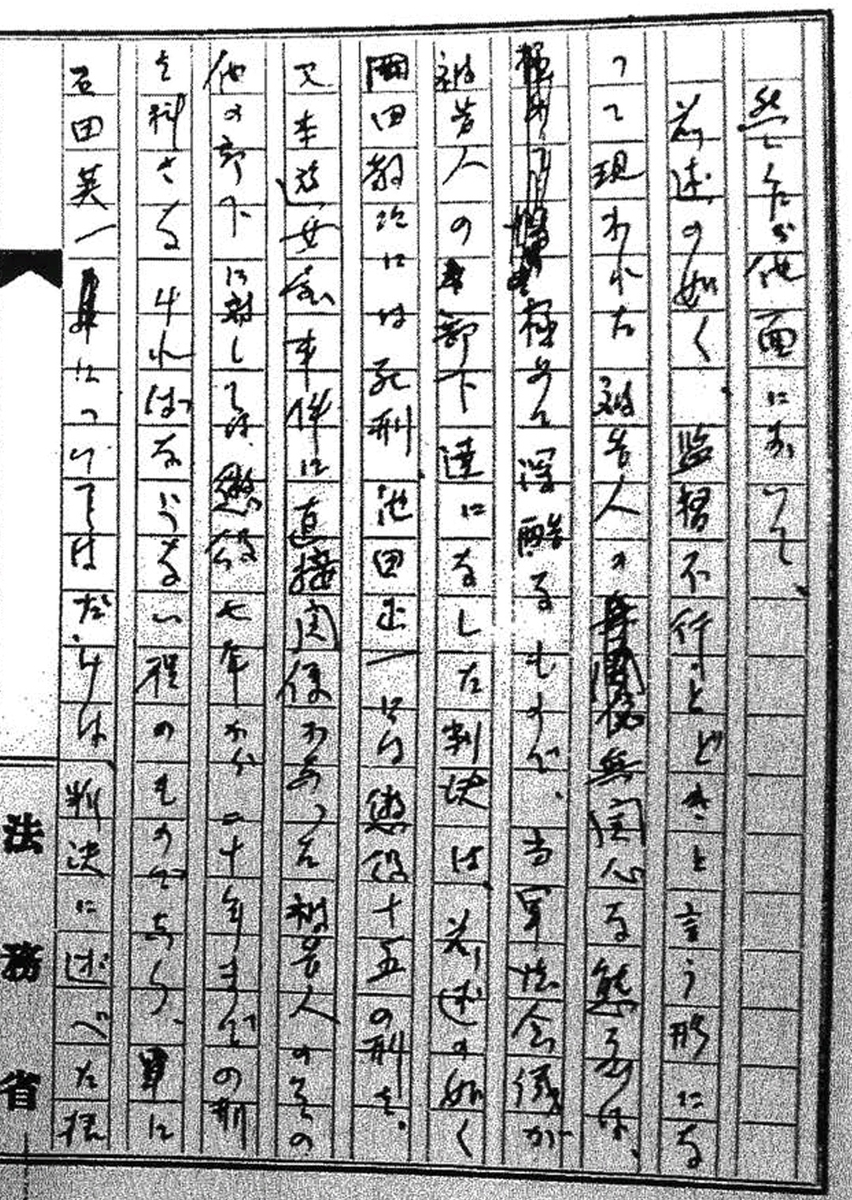 然しながら他面において、
前述の如く、監督不行とどきと言う形にな
つて現われた被告人の無関心なる態度は、
極めて深酷なるもので、当軍法会議が
被告人の部下達になした判決は、前述の如く
岡田教次には死刑 池田正一には懲役十五の刑を、
又本遊女会事件に直接関係のあつた被告人のその
他の部下に対しては、懲役七年から二十年までの刑
を科さなければならない程のものであり、単に
石田英一につけてはだけは判決に述べた様
法務省